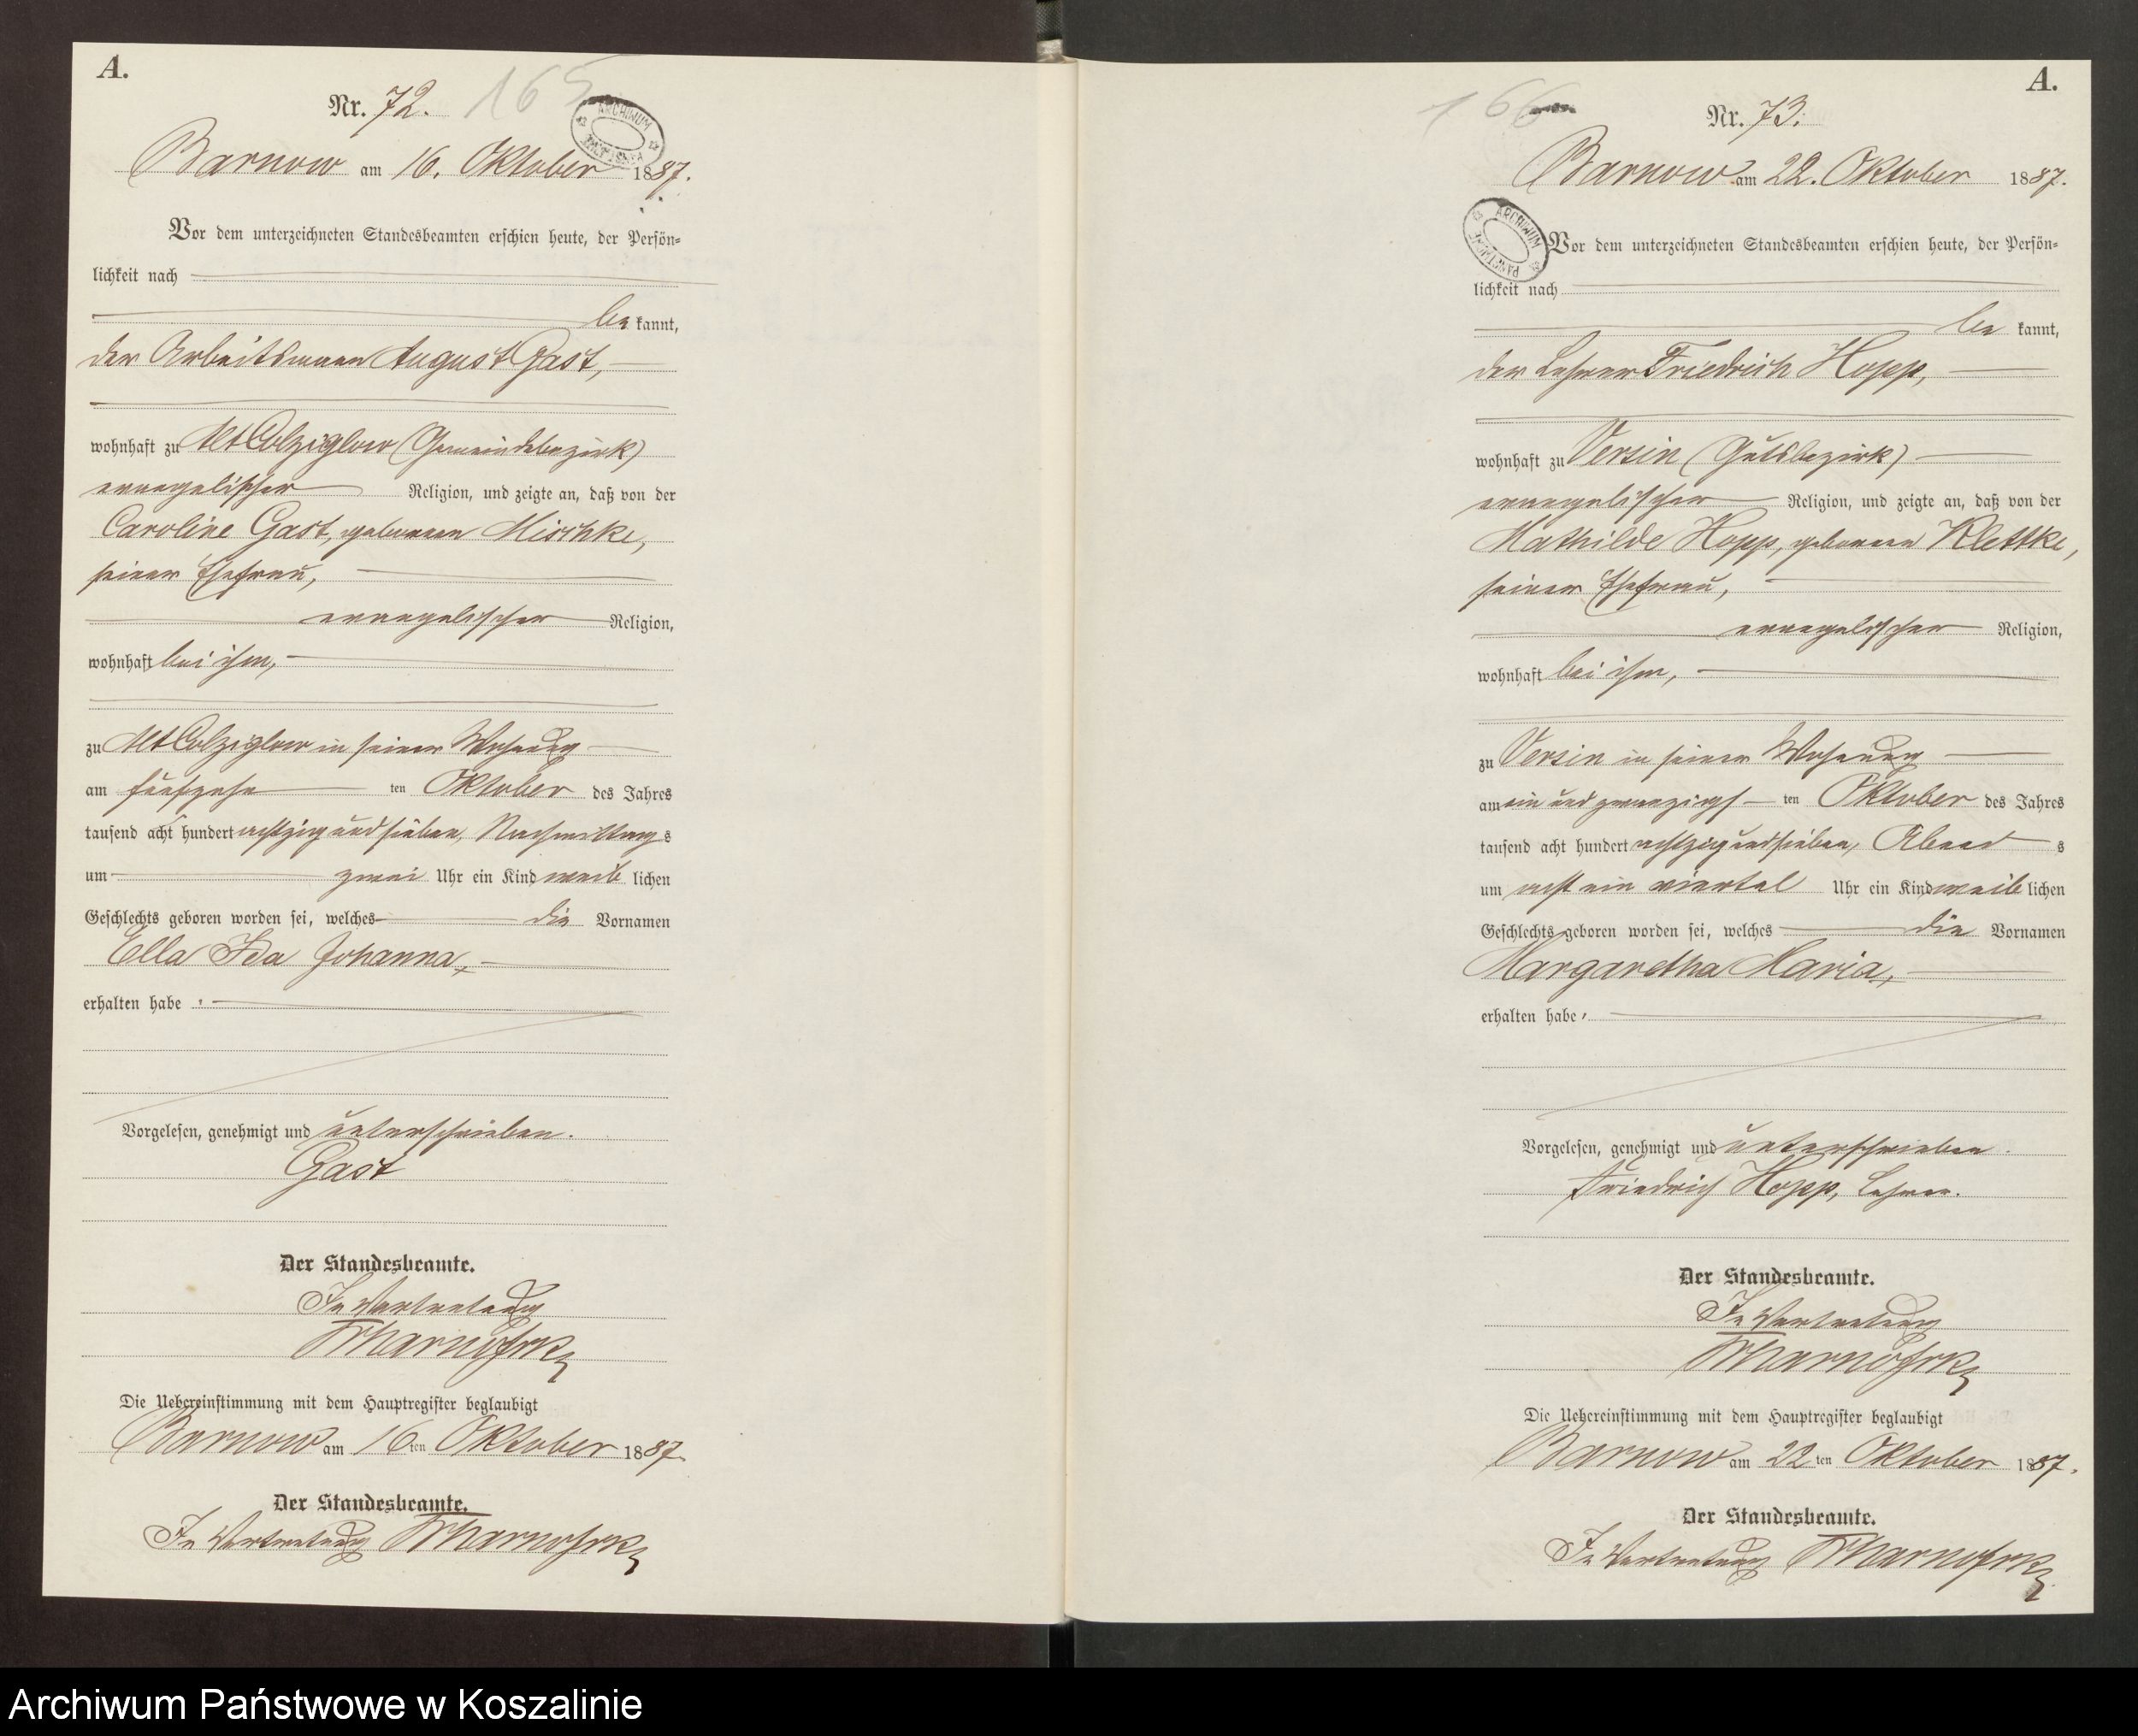 A.
Nr. 72.
165
ARCHIWUM
Barnow am 16. Oktober 1887.
Vor dem unterzeichneten Standesbeamten erschien heute, der Persön-
lichkeit nach
be kannt,
der Arbeitsmann August Gast,
wohnhaft zu Alt Colziglow (Gemeindebezirk)
evangelischer Religion, und zeigte an, daß von der
Caroline Gast, geborenen Mischke,
seiner Ehefrau,
evangelischer Religion,
wohnhaft bei ihm,
zu Alt Colziglow in seiner Wohnung
am fünfzehn ten Oktober des Jahres
tausend acht hundert achtzig und sieben, Nachmittag s
um zwei Uhr ein Kind weib lichen
Geschlechts geboren worden sei, welches die Vornamen
Ella Ida Johanna,
erhalten habe.
Vorgelesen, genehmigt und unterschrieben.
Gast
Der Standesbeamte.
In Vertretung
Die Uebereinstimmung mit dem Hauptregister beglaubigt
Barnow am 16 ten Oktober 1887.
Der Standesbeamte.
In Vertretung
A.
Nr. 73.
166
Barnow am 22. Oktober 1887.
ARCHIWUM PAŃSTWOWE
Vor dem unterzeichneten Standesbeamten erschien heute, der Persön-
lichkeit nach
be kannt,
der Lehrer Friedrich Hopp,
wohnhaft zu Versin (Gutsbezirk)
evangelischer Religion, und zeigte an, daß von der
Mathilde Hopp, geborenen Klettke,
seiner Ehefrau,
evangelischer Religion,
wohnhaft bei ihm,
zu Versin in seiner Wohnung
am ein und zwanzigs ten Oktober des Jahres
tausend acht hundert achtzig und sieben, Abend s
um acht ein viertel Uhr ein Kind weib lichen
Geschlechts geboren worden sei, welches die Vornamen
Margaretha Maria,
erhalten habe.
Vorgelesen, genehmigt und unterschrieben.
Friedrich Hopp, Lehrer.
Der Standesbeamte.
In Vertretung
Die Uebereinstimmung mit dem Hauptregister beglaubigt
Barnow am 22 ten Oktober 1887.
Der Standesbeamte.
In Vertretung
Archiwum Państwowe w Koszalinie